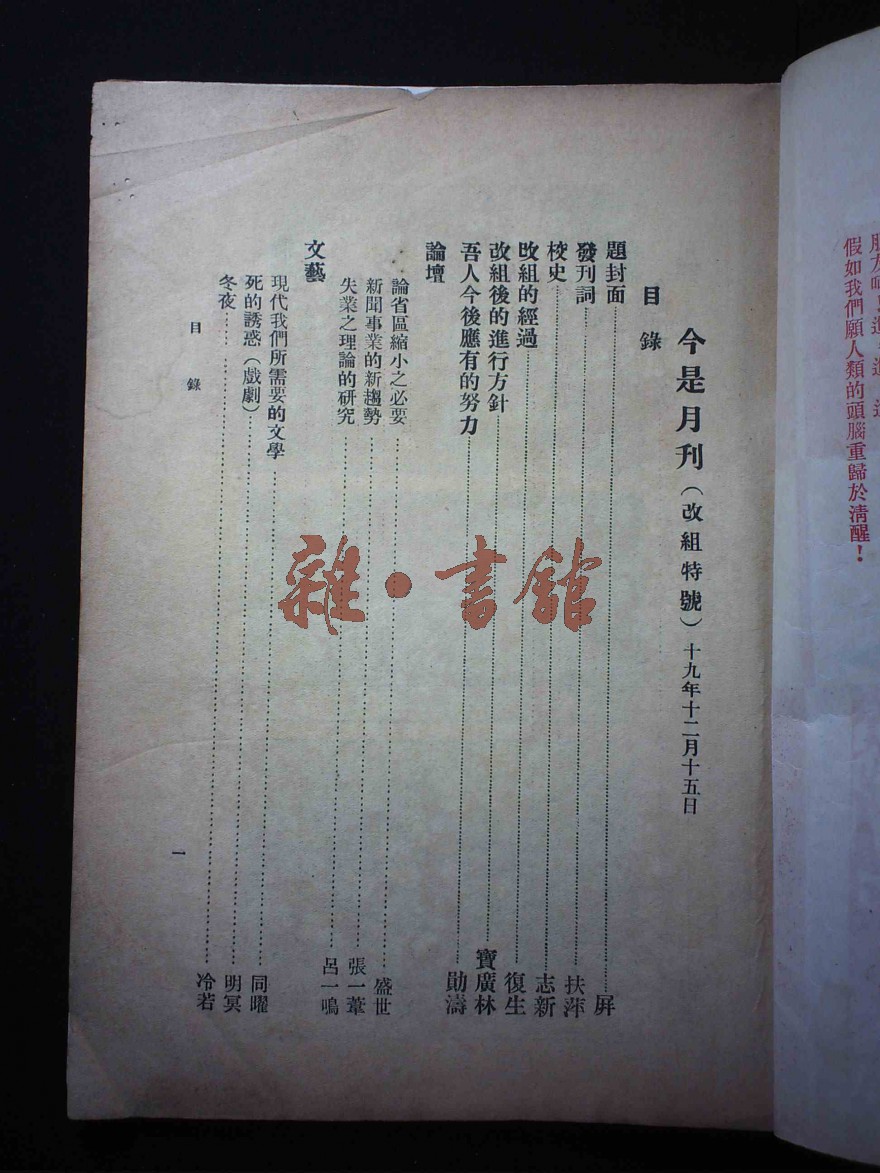 假如我們願人類的頭腦重歸於清醒！
今是月刊（改組特號）十九年十二月十五日
目錄
題封面……屏
發刊詞……扶萍
校史……志新
改組的經過……復生
改組後的進行方針……寶廣林
吾人今後應有的努力……勛濤
論壇
論省區縮小之必要……盛世
新聞事業的新趨勢……張一葦
失業之理論的研究……呂一鳴
文藝
現代我們所需要的文學……同曜
死的誘惑（戲劇）……明冥
冬夜……冷若
目錄
一
雜·書館